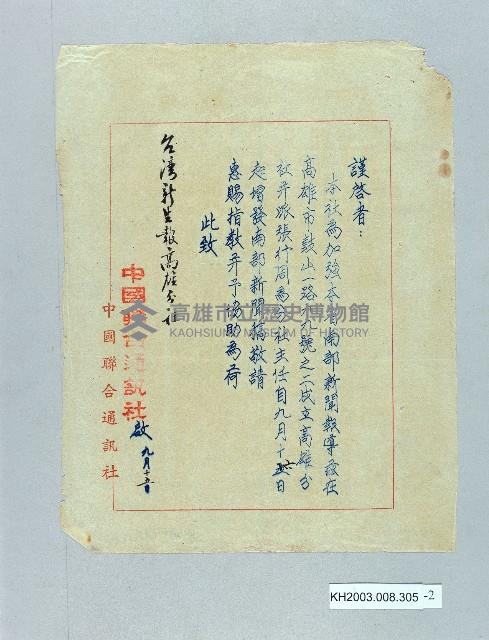 謹啓者：
本社為加強本省南部新聞報導茲在
高雄市鼓山一路 號之二成立高雄分
社并派張行周為分社主任自九月十 日
起增發南部新聞稿敬請
惠賜指教并予協助為荷
此致
台灣新生報高雄分社
中國聯合通訊社
啟 九月十五日
中國聯合通訊社
高雄市立歷史博物館
KAOHSIUNG MUSEUM OF HISTORY
KH2003.008.305 -2